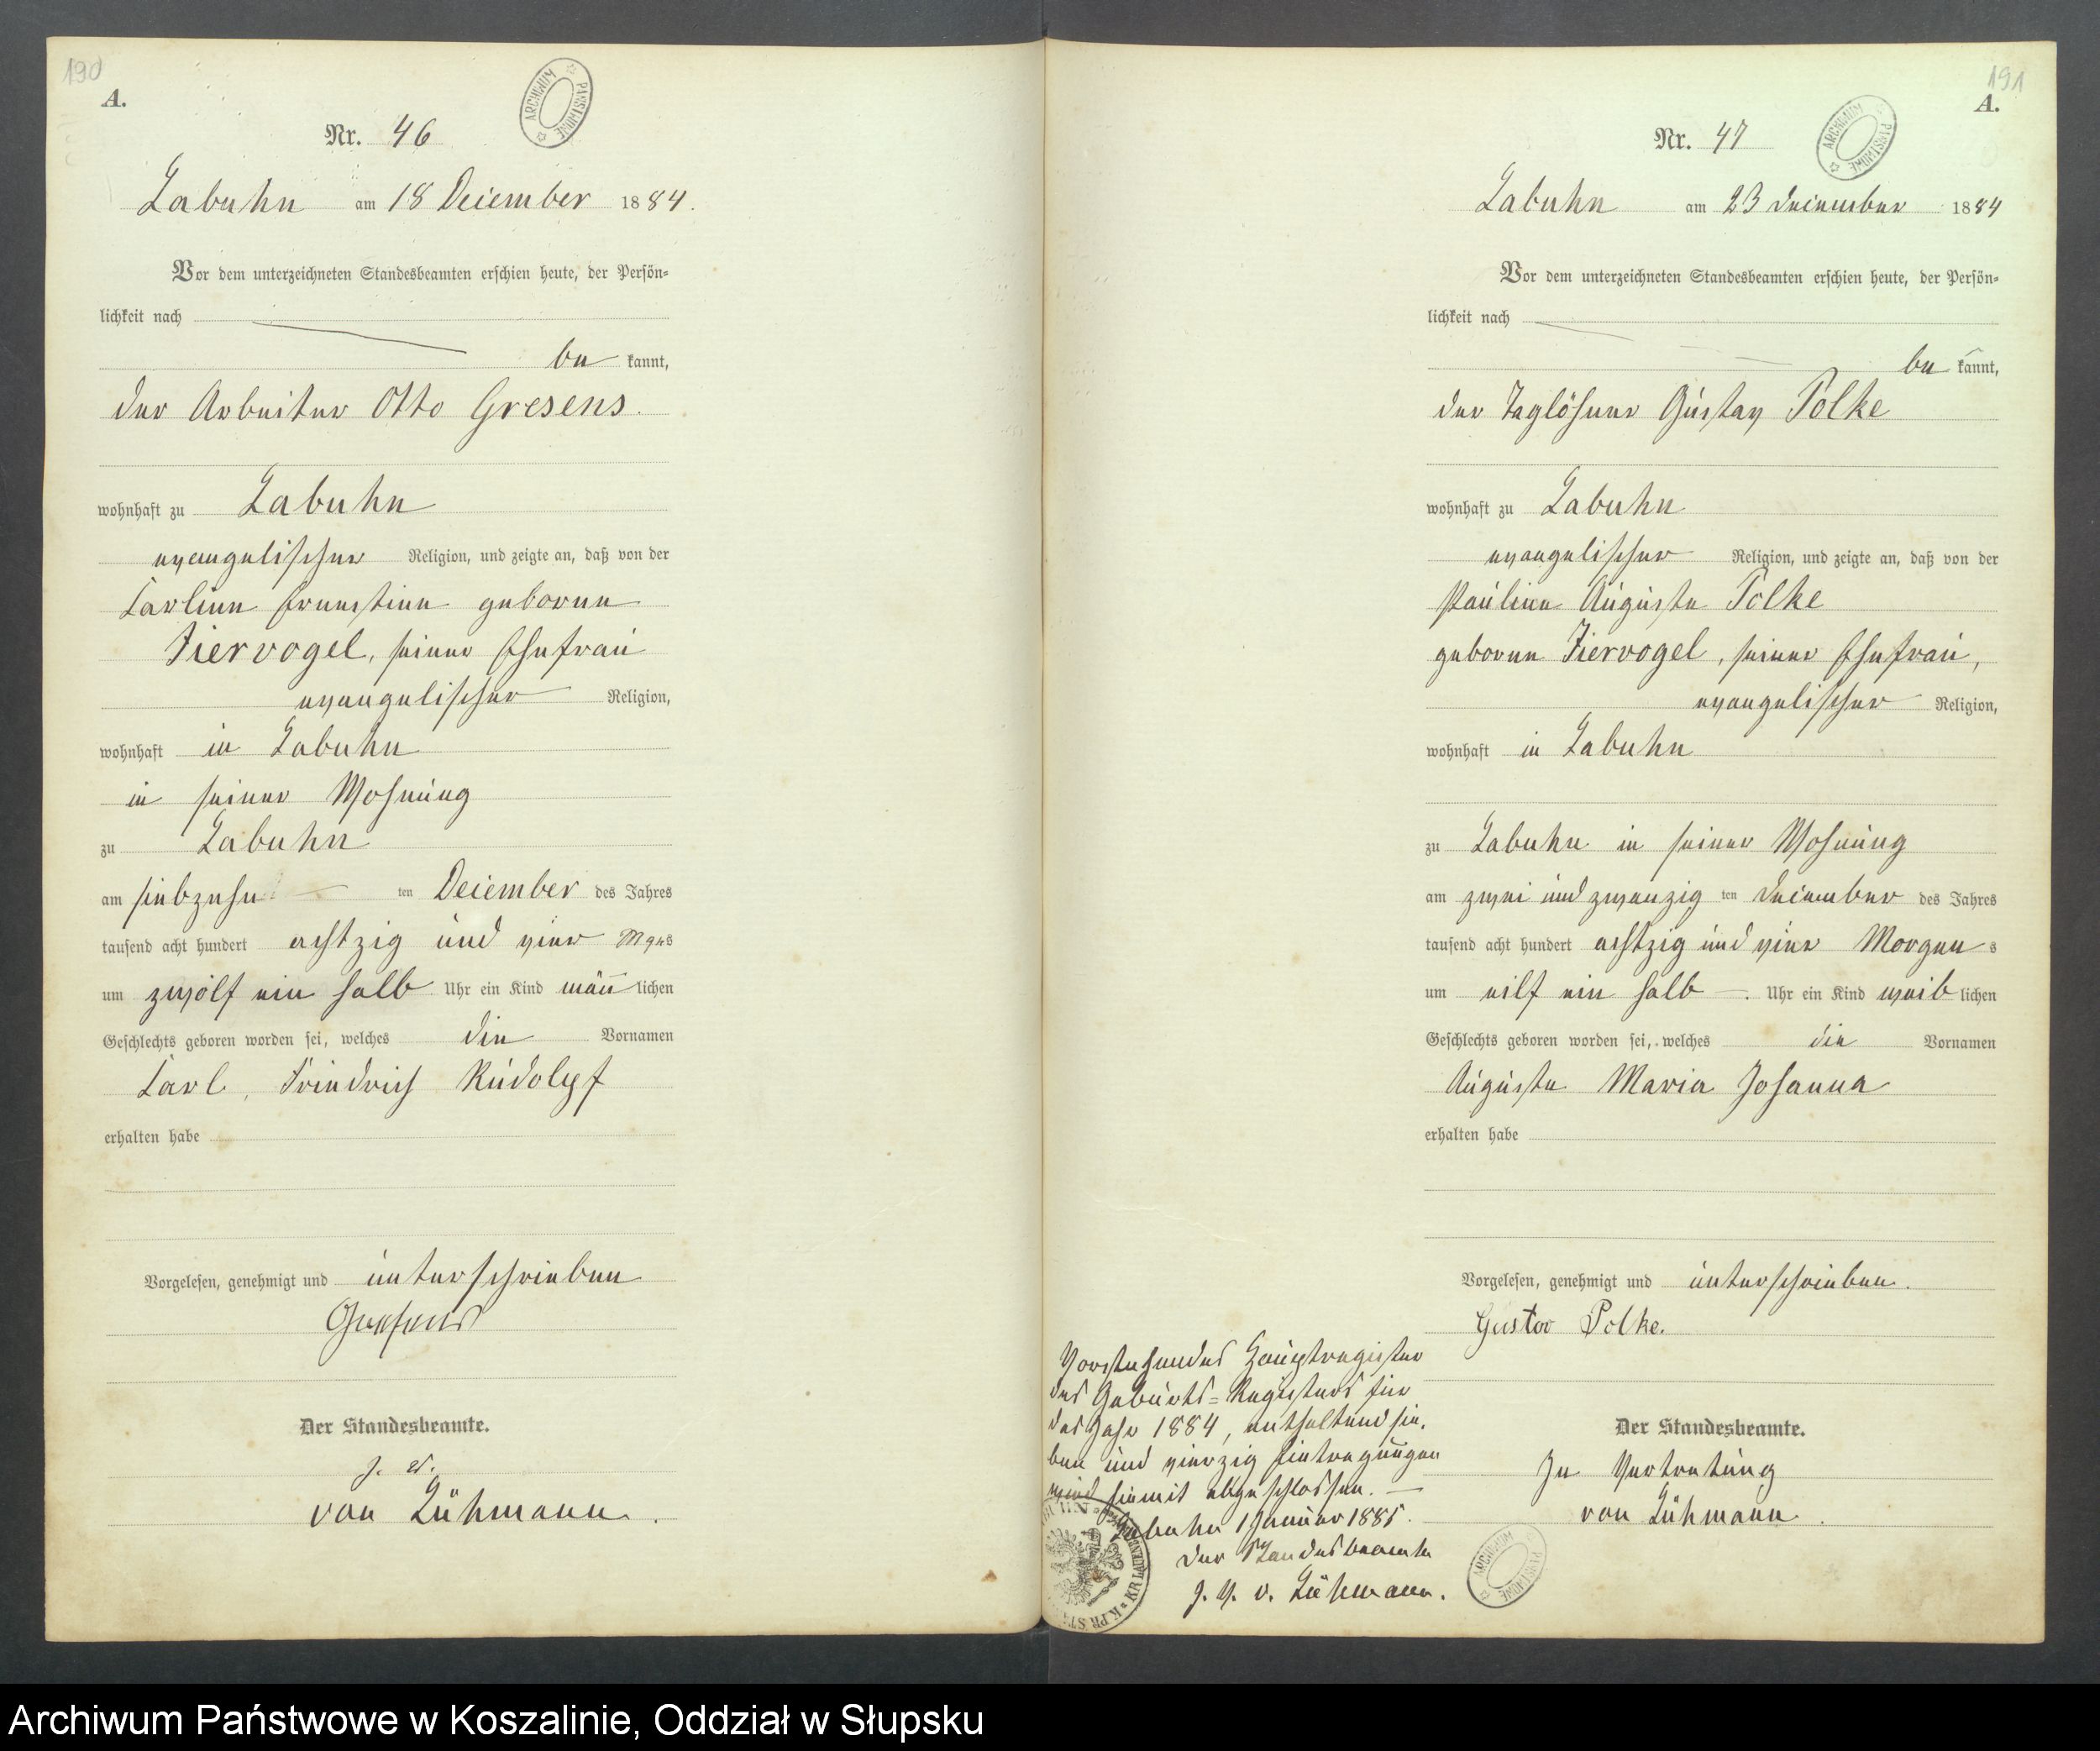 190
A.
Nr. 46
ARCHIWUM PAŃSTWOWE
Labuhn am 18 Deiember 1884.
Vor dem unterzeichneten Standesbeamten erschien heute, der Persön-
lichkeit nach
be kannt,
der Arbeiter Otto Gresens.
wohnhaft zu Labuhn
evangelischer Religion, und zeigte an, daß von der
Carline Ernestine geborene
Ziervogel, seiner Ehefrau
evangelischer Religion,
wohnhaft in Labuhn
in seiner Wohnung
zu Labuhn
am siebzehn ten Deiember des Jahres
tausend acht hundert achtzig und vier Mgns
um zwölf ein halb Uhr ein Kind männlichen
Geschlechts geboren worden sei, welches die Vornamen
Carl, Friedrich Rudolpf
erhalten habe
Vorgelesen, genehmigt und unterschrieben
Gresens
Der Standesbeamte.
von Lühmann.
191
A.
Nr. 47
ARCHIWUM PAŃSTWOWE
Labuhn am 23 Deiember 1884
Vor dem unterzeichneten Standesbeamten erschien heute, der Persön-
lichkeit nach
be kannt,
der Taglöhner Gustav Polke
wohnhaft zu Labuhn
evangelischer Religion, und zeigte an, daß von der
Pauline Auguste Polke
geborene Ziervogel, seiner Ehefrau,
evangelischer Religion,
wohnhaft in Labuhn
zu Labuhn in seiner Wohnung
am zwei und zwanzig ten Deiember des Jahres
tausend acht hundert achtzig und vier Morgens
um eilf ein halb Uhr ein Kind weiblichen
Geschlechts geboren worden sei, welches die Vornamen
Auguste Maria Johanna
erhalten habe
Vorgelesen, genehmigt und unterschrieben.
Gustav Polke.
Der Standesbeamte.
In Vertretung
von Lühmann.
ARCHIWUM PAŃSTWOWE
Vorstehendes Hauptregister
des Geburts=Registers für
das Jahr 1884, enthaltend sie,
ben und vierzig Eintragungen
wird hiermit abgeschlossen.
Labuhn 1 Januar 1885.
Der Standesbeamte
J. V. v. Lühmann.
Archiwum Państwowe w Koszalinie, Oddział w Słupsku